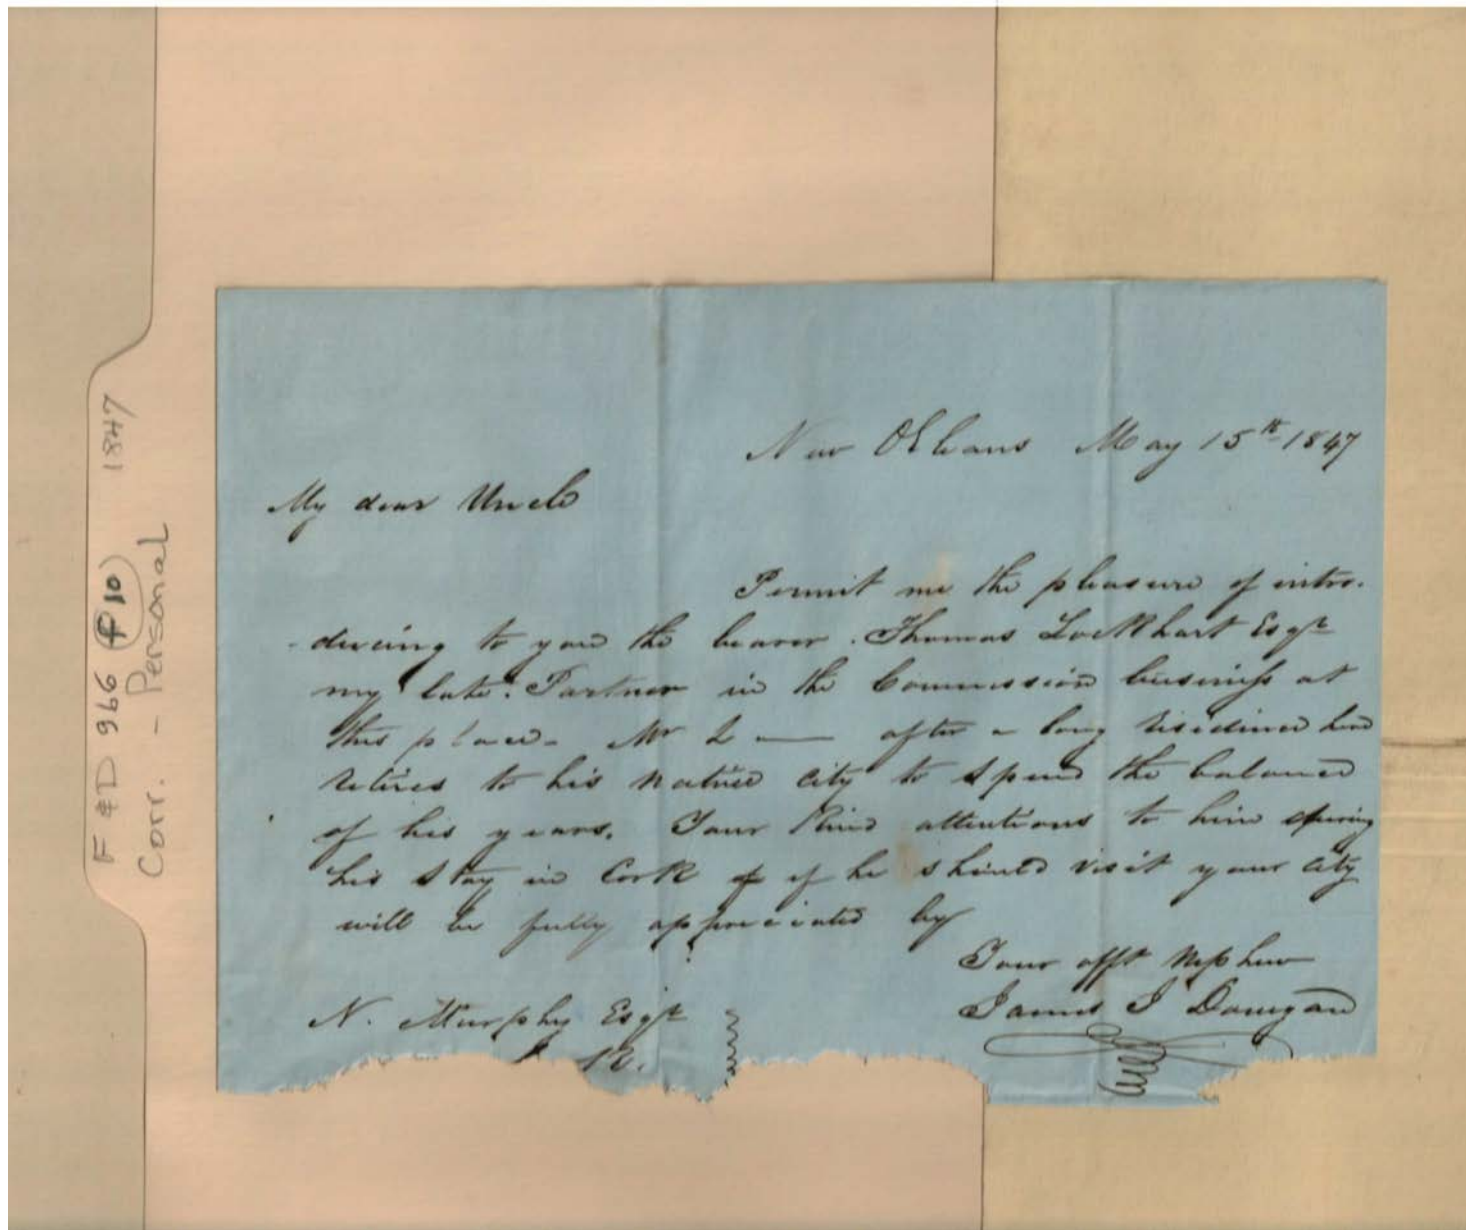 F & D 966 f 10 1847
Corr. - Personal
New Orleans May 15th 1847
My dear Uncle
Permit me the pleasure of intro-
-ducing to you the bearer. Thomas Lockhart Esqr
my late Partner in the Commission business at
this place - Mr L — after a long residence here
retires to his native city to spend the balance
of his years. Your kind attentions to him during
his stay in Cork or if he should visit your city
will be fully appreciated by
Your afft Nephew
James J Donegan
N. Murphy Esqr